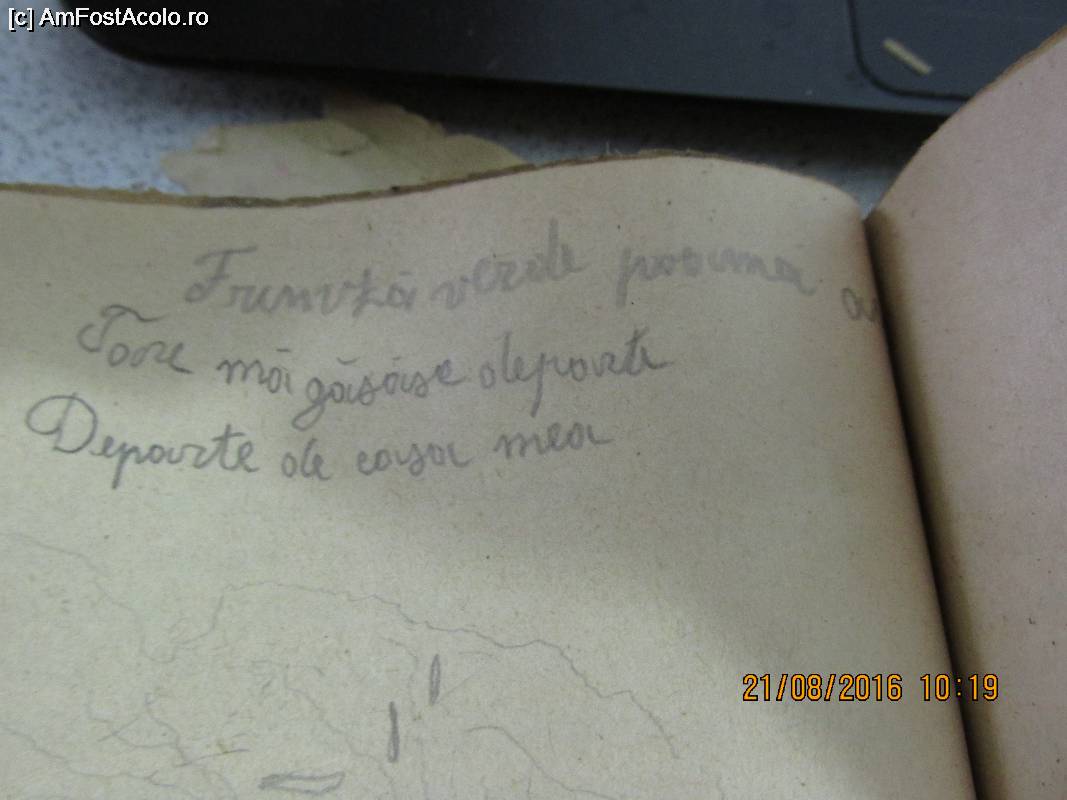 [c] AmFostAcolo.ro
Frunză verde poamă
Toate mă găsăsc departe
Departe de casa mea
21/08/2016 10:19